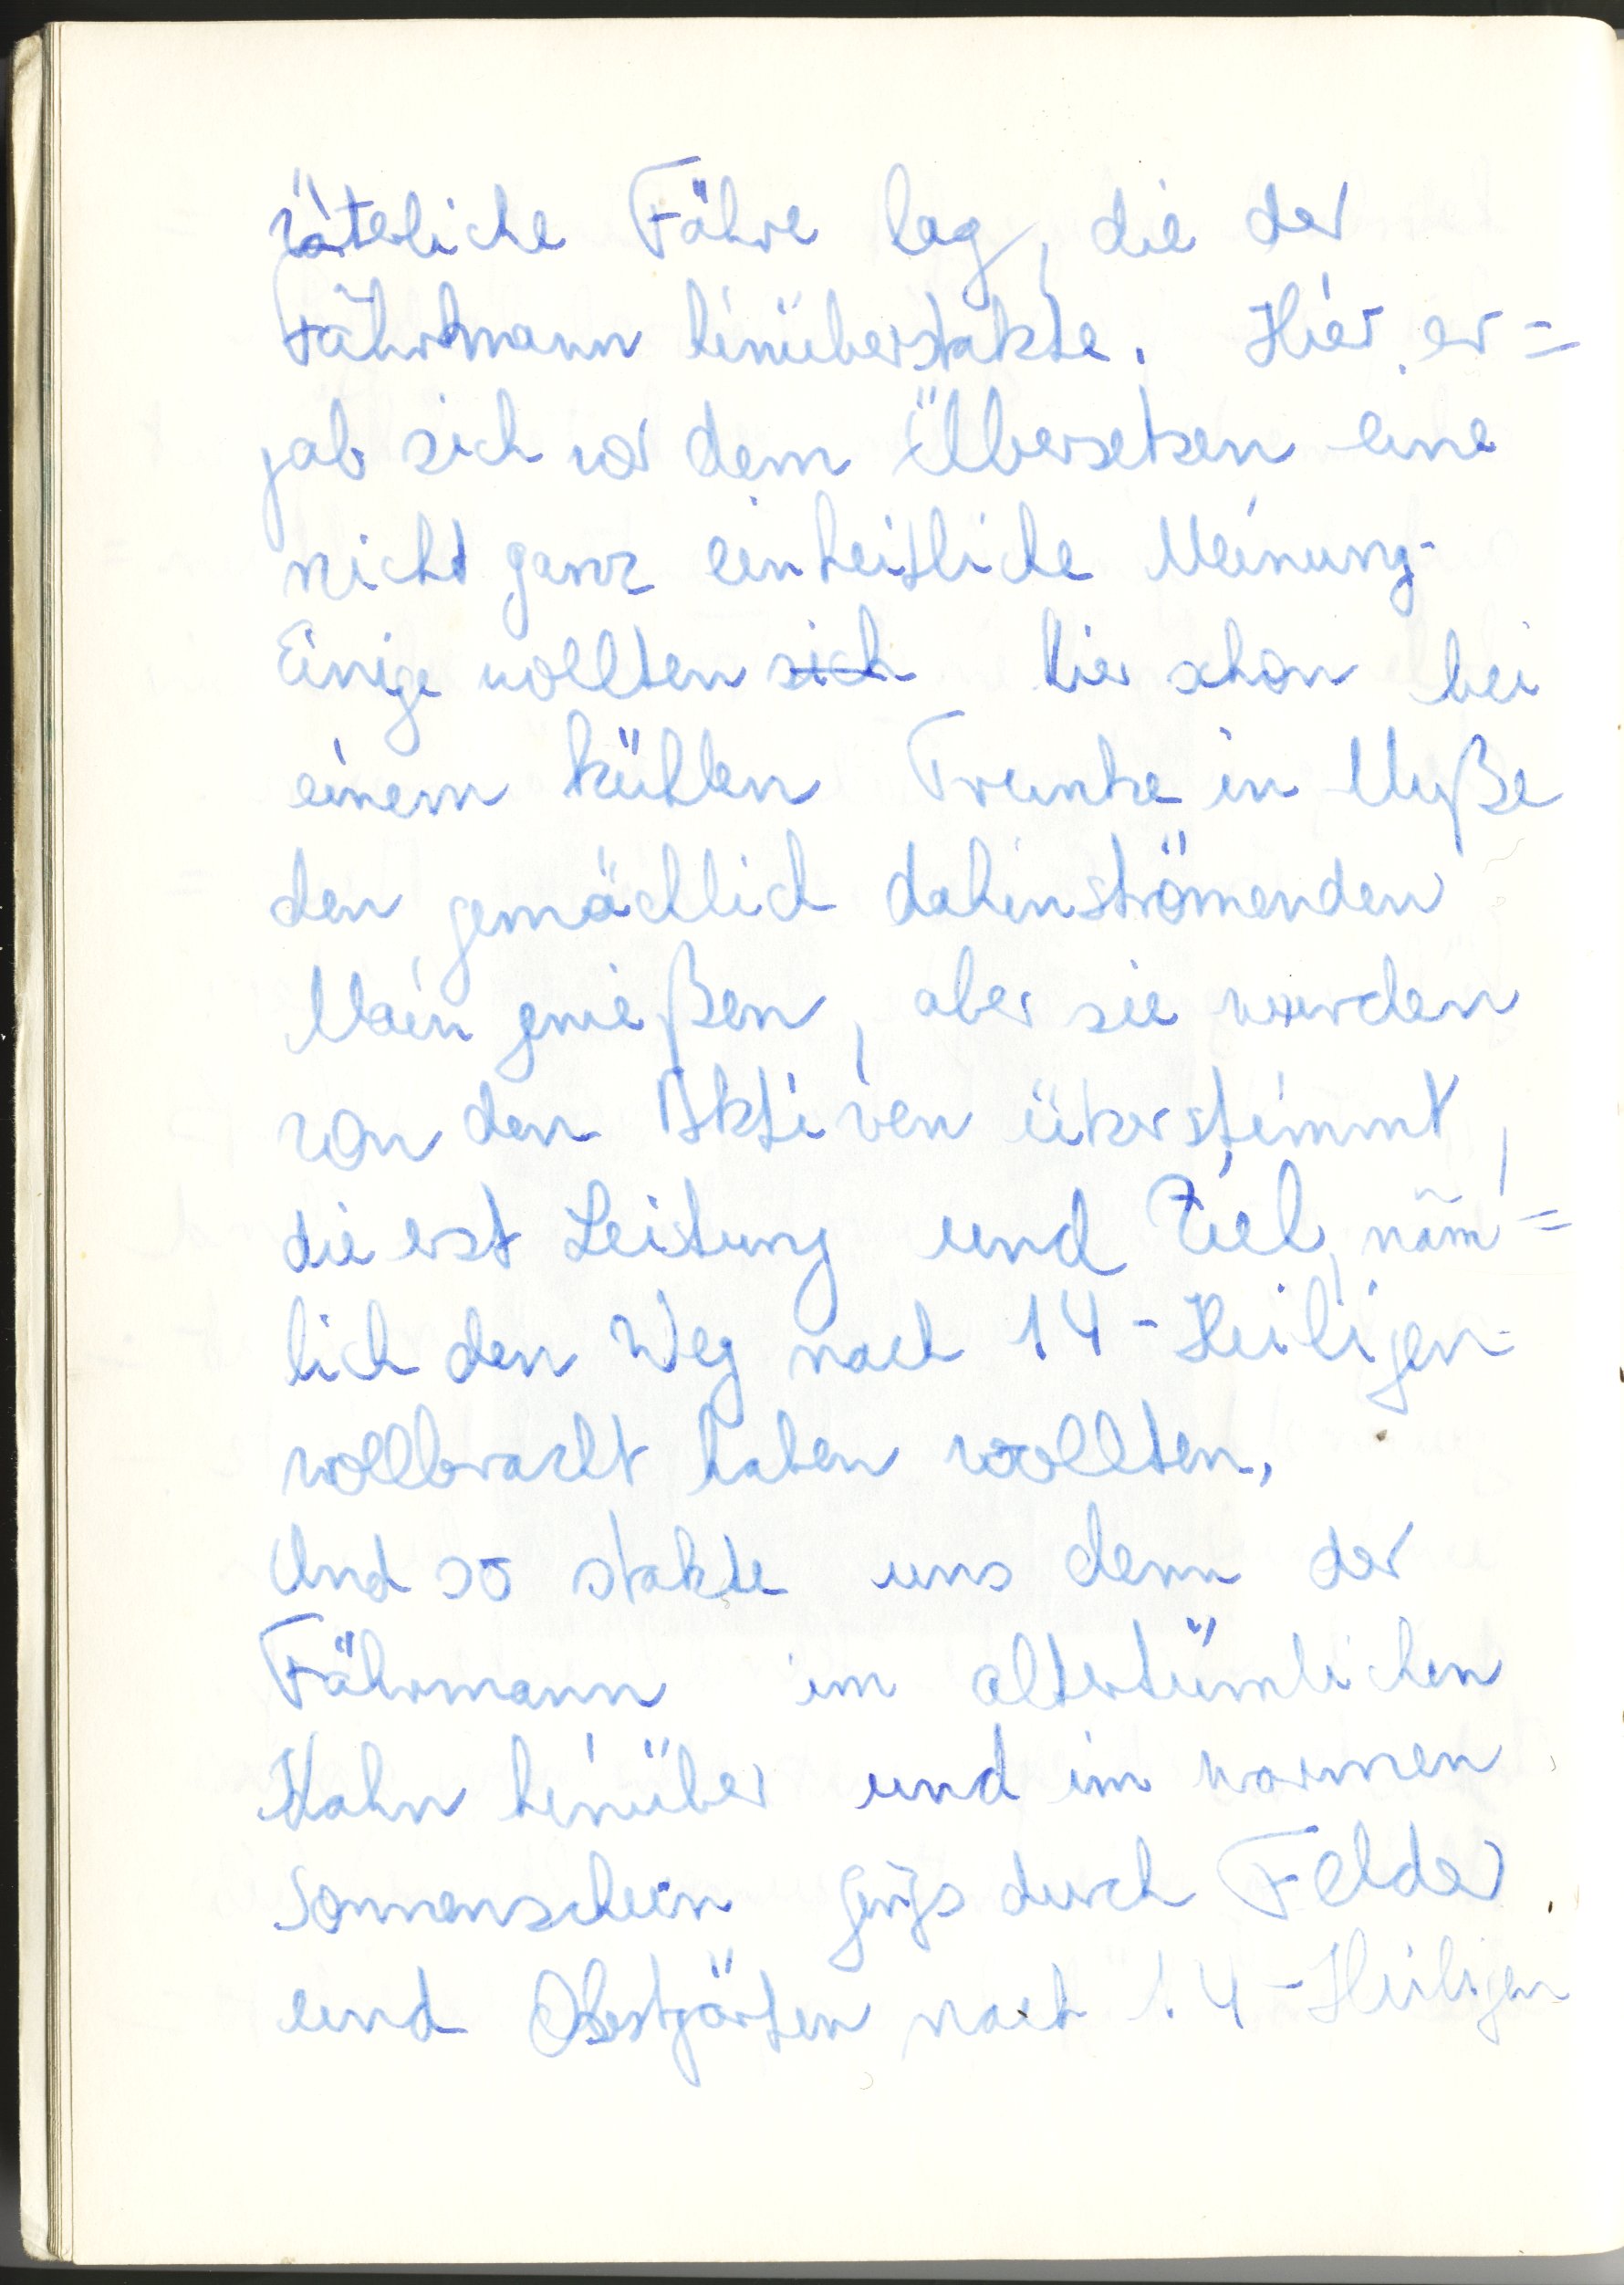 väterliche Fähre lag, die der
Fährmann hinüberstakte. Hier er=
gab sich vor dem Übersetzen eine
nicht ganz einheitliche Meinung.
Einige wollten sich hier schon bei
einem kühlen Trunke in Muße
den gemächlich dahinströmenden
Main genießen, aber sie wurden
von den Aktiven überstimmt,
die erst Leitung und Ziel, näm=
lich den Weg nach 14-Heiligen
vollbracht haben wollten.
Und so stakte uns denn der
Fährmann im altertümlichen
Kahn hinüber und im warmen
Sonnenschein gings durch Felder
und Obstgärten nach 14-Heiligen